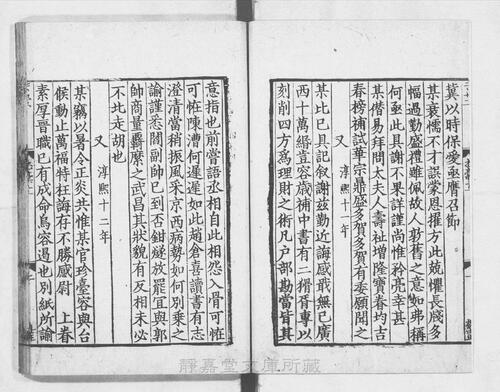 冀以時保愛亟膺召節
某衰懦不才誤蒙恩擢方此兢懼長牋多
幅過勤盛禮雖佩故人敦舊之意如弗稱
何亟此具謝不果詳謹尚惟矜亮幸甚
某僭易拜問太夫人壽祉增隆寶眷均吉
春榜補試華宗鼎盛多賀多賀有委願聞之
又 淳熙十一年
某比已具記叙謝茲勤近誨感戢無已廣
西十萬緡豈容歲補中書有二稱胥專以
刻削四方爲理財之術凡户部勘當皆其
意指也前嘗語丞相自此相怨入骨可怪
可怪陳漕何遲遲如此趙倉喜讀書有志
澄清當稍振風采京西病勢如何別乘之
諭謹悉闗副帥已到否鉗燧放罷宜與郭
帥商量髒麽之武昌其狀貌有反相未必
不北走胡也
又 淳熙十二年
某竊以暑令正炎共惟某官珍臺容與台
候動止萬福特枉誨存不勝感尉 上眷
素厚晉職已有成命烏容遏也別紙所諭
靜嘉堂文庫所藏